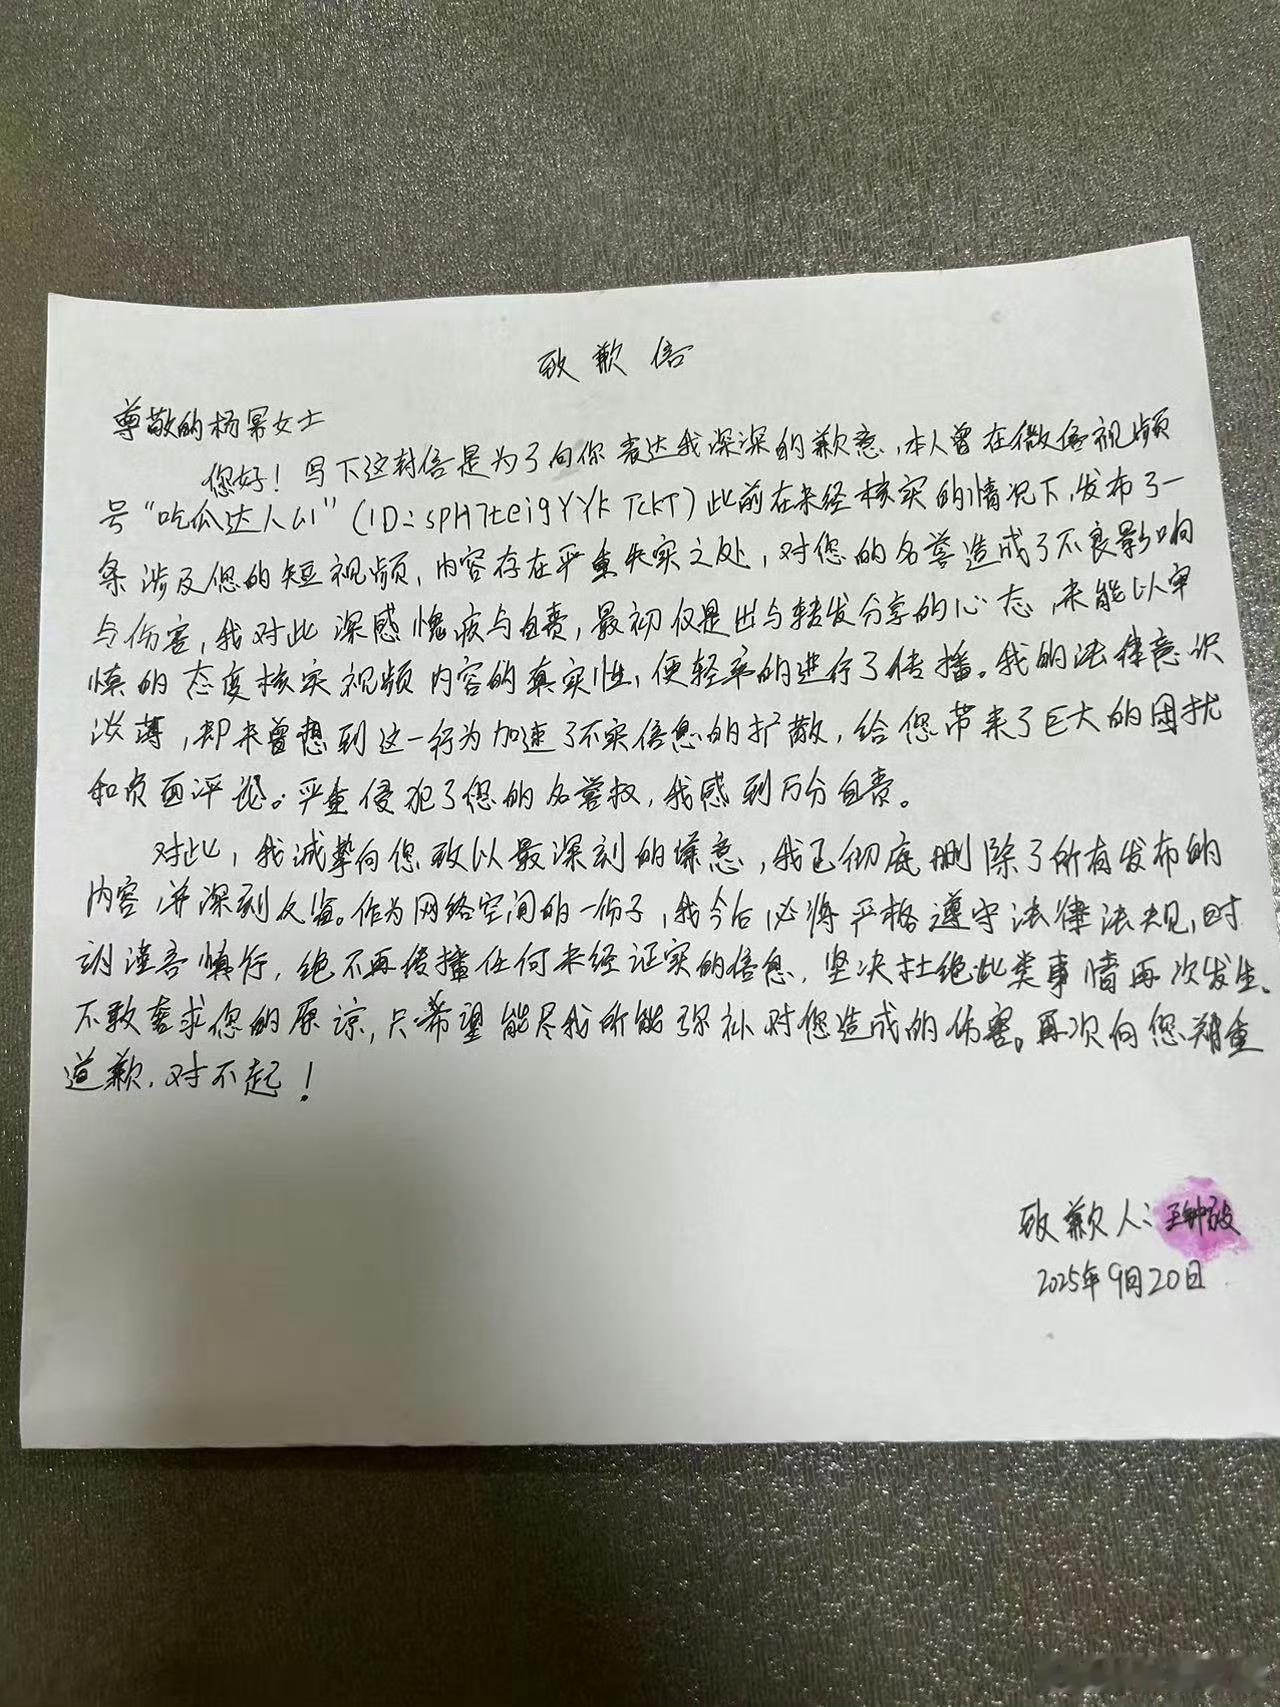 致歉信
尊敬的杨幂女士
您好！写下这封信是为了向你表达我深深的歉意，本人曾在微信视频
号“吃瓜达人山”（ID：spH7teigYYkTckT）此前在未经核实的情况下，发布了一
条涉及您的短视频，内容存在严重失实之处，对您的名誉造成了不良影响
与伤害，我对此深感愧疚与自责，最初仅是出与转发分享的心态，未能以审
慎的态度核实视频内容的真实性，便轻率的进行了传播。我的法律意识
淡薄，却未曾想到这一行为加速了不实信息的扩散，给您带来了巨大的困扰
和负面评论。严重侵犯了您的名誉权，我感到万分自责。
对此，我诚挚向您致以最深刻的歉意，我已彻底删除了所有发布的
内容，并深刻反省。作为网络空间的一份子，我今后必将严格遵守法律法规，时
刻谨言慎行，绝不再传播任何未经证实的信息，坚决杜绝此类事情再次发生。
不敢奢求您的原谅，只希望能尽我所能弥补对您造成的伤害。再次向您郑重
道歉，对不起！
致歉人：
2025年9月20日